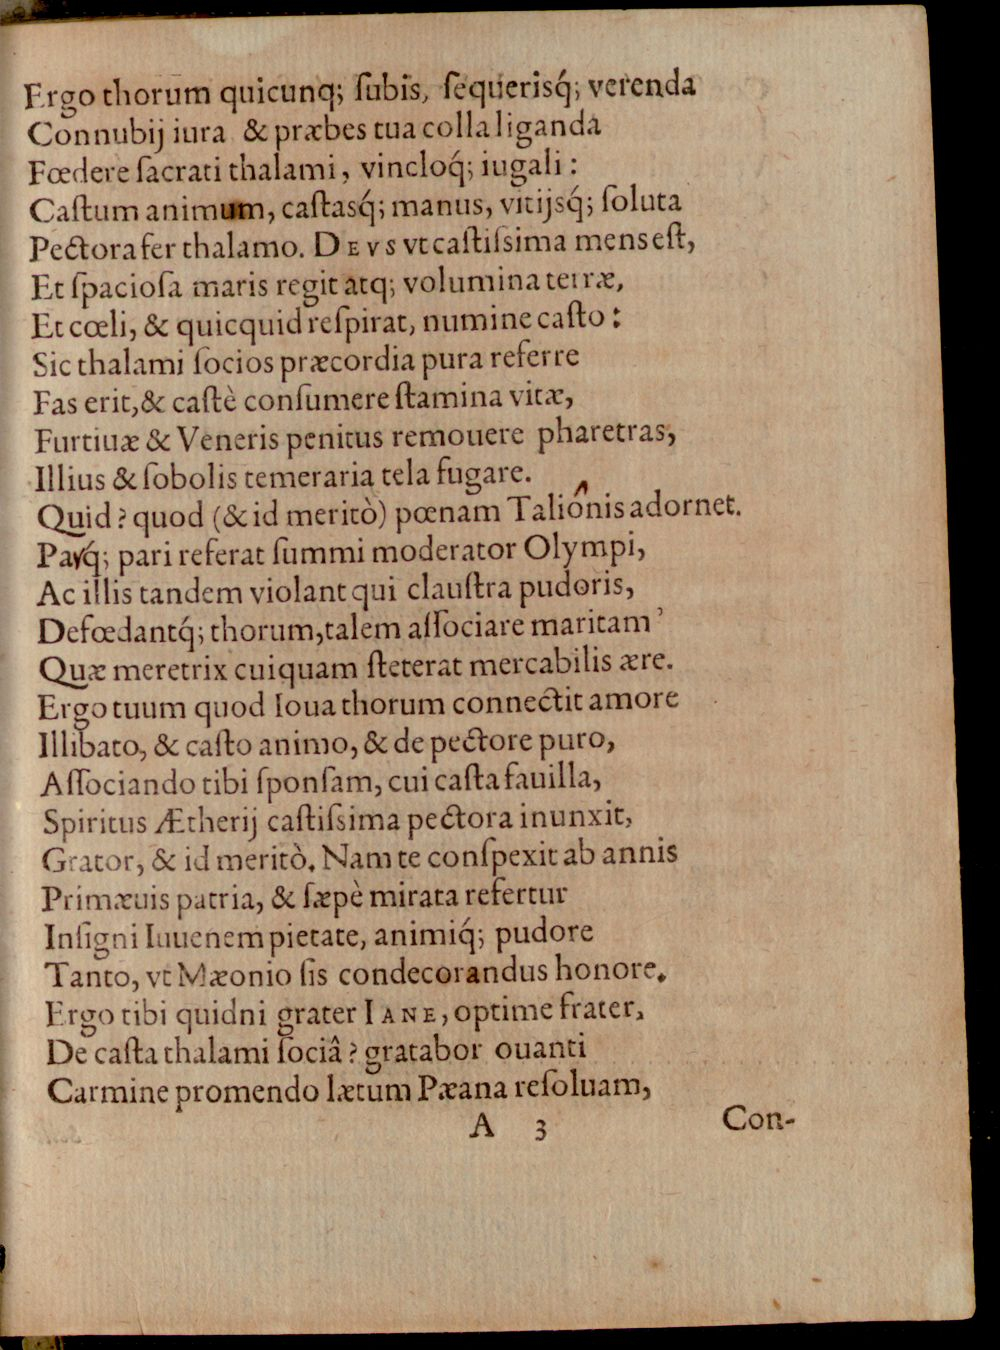 Ergo thorum quicunq; ſubis, ſequerisq́; verenda
Connubij iura & præbes tua colla liganda
Fœdere ſacrati thalami, vincloq́; iugali:
Caſtum animum, caſtasq́; manus, vitijsq́; ſoluta
Pectora fer thalamo. DEVS vt caſtiſsima mens eſt,
Et ſpacioſa maris regit atq; volumina terræ,
Et cœli, & quicquid reſpirat, numine caſto:
Sic thalami ſocios præcordia pura referre
Fas erit, & caſtè conſumere ſtamina vitæ,
Furtiuæ & Veneris penitus remouere pharetras,
Illius & ſobolis temeraria tela fugare.
Quid? quod (& id meritò) pœnam Taliónis adornet.
Parq́; pari referat ſummi moderator Olympi,
Ac illis tandem violant qui clauſtra pudoris,
Defœdantq́; thorum, talem aſſociare maritam,
Quæ meretrix cuiquam ſteterat mercabilis ære.
Ergo tuum quod Ioua thorum connectit amore
Illibato, & caſto animo, & de pectore puro,
Aſſociando tibi ſponſam, cui caſta fauilla,
Spiritus Ætherij caſtiſsima pectora inunxit,
Grator, & id meritò. Nam te conſpexit ab annis
Primæuis patria, & ſæpè mirata refertur
Inſigni Iuuenem pietate, animiq́; pudore
Tanto, vt Mæonio ſis condecorandus honore.
Ergo tibi quidni grater IANE, optime frater,
De caſta thalami ſociâ? gratabor ouanti
Carmine promendo lætum Pæana reſoluam,
A 3 Con-